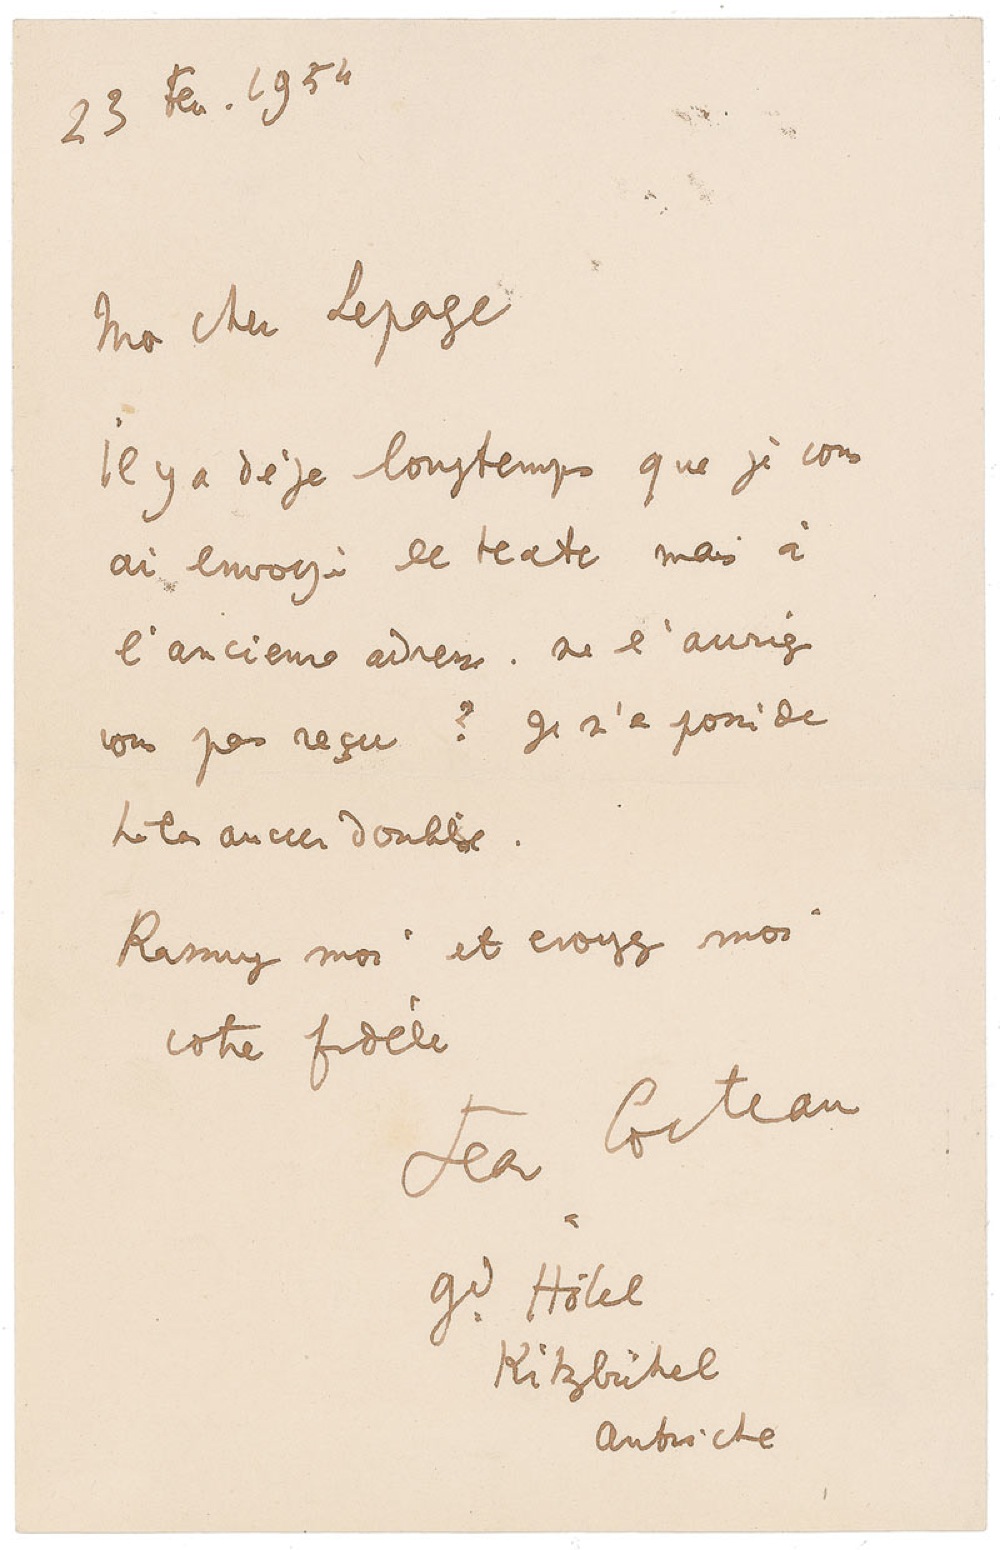 23 Fev. 1954
Mon cher Lepage
il y a déjà longtemps que je vous
ai envoyé le texte mais à
l'ancienne adresse. ne l'auriez
vous pas reçu ? Je n'en possède
hélas aucun double.
Rassurez moi et croyez moi
votre fidèle
Jean Cocteau
gd. Hôtel
Kitzbühel
Autriche